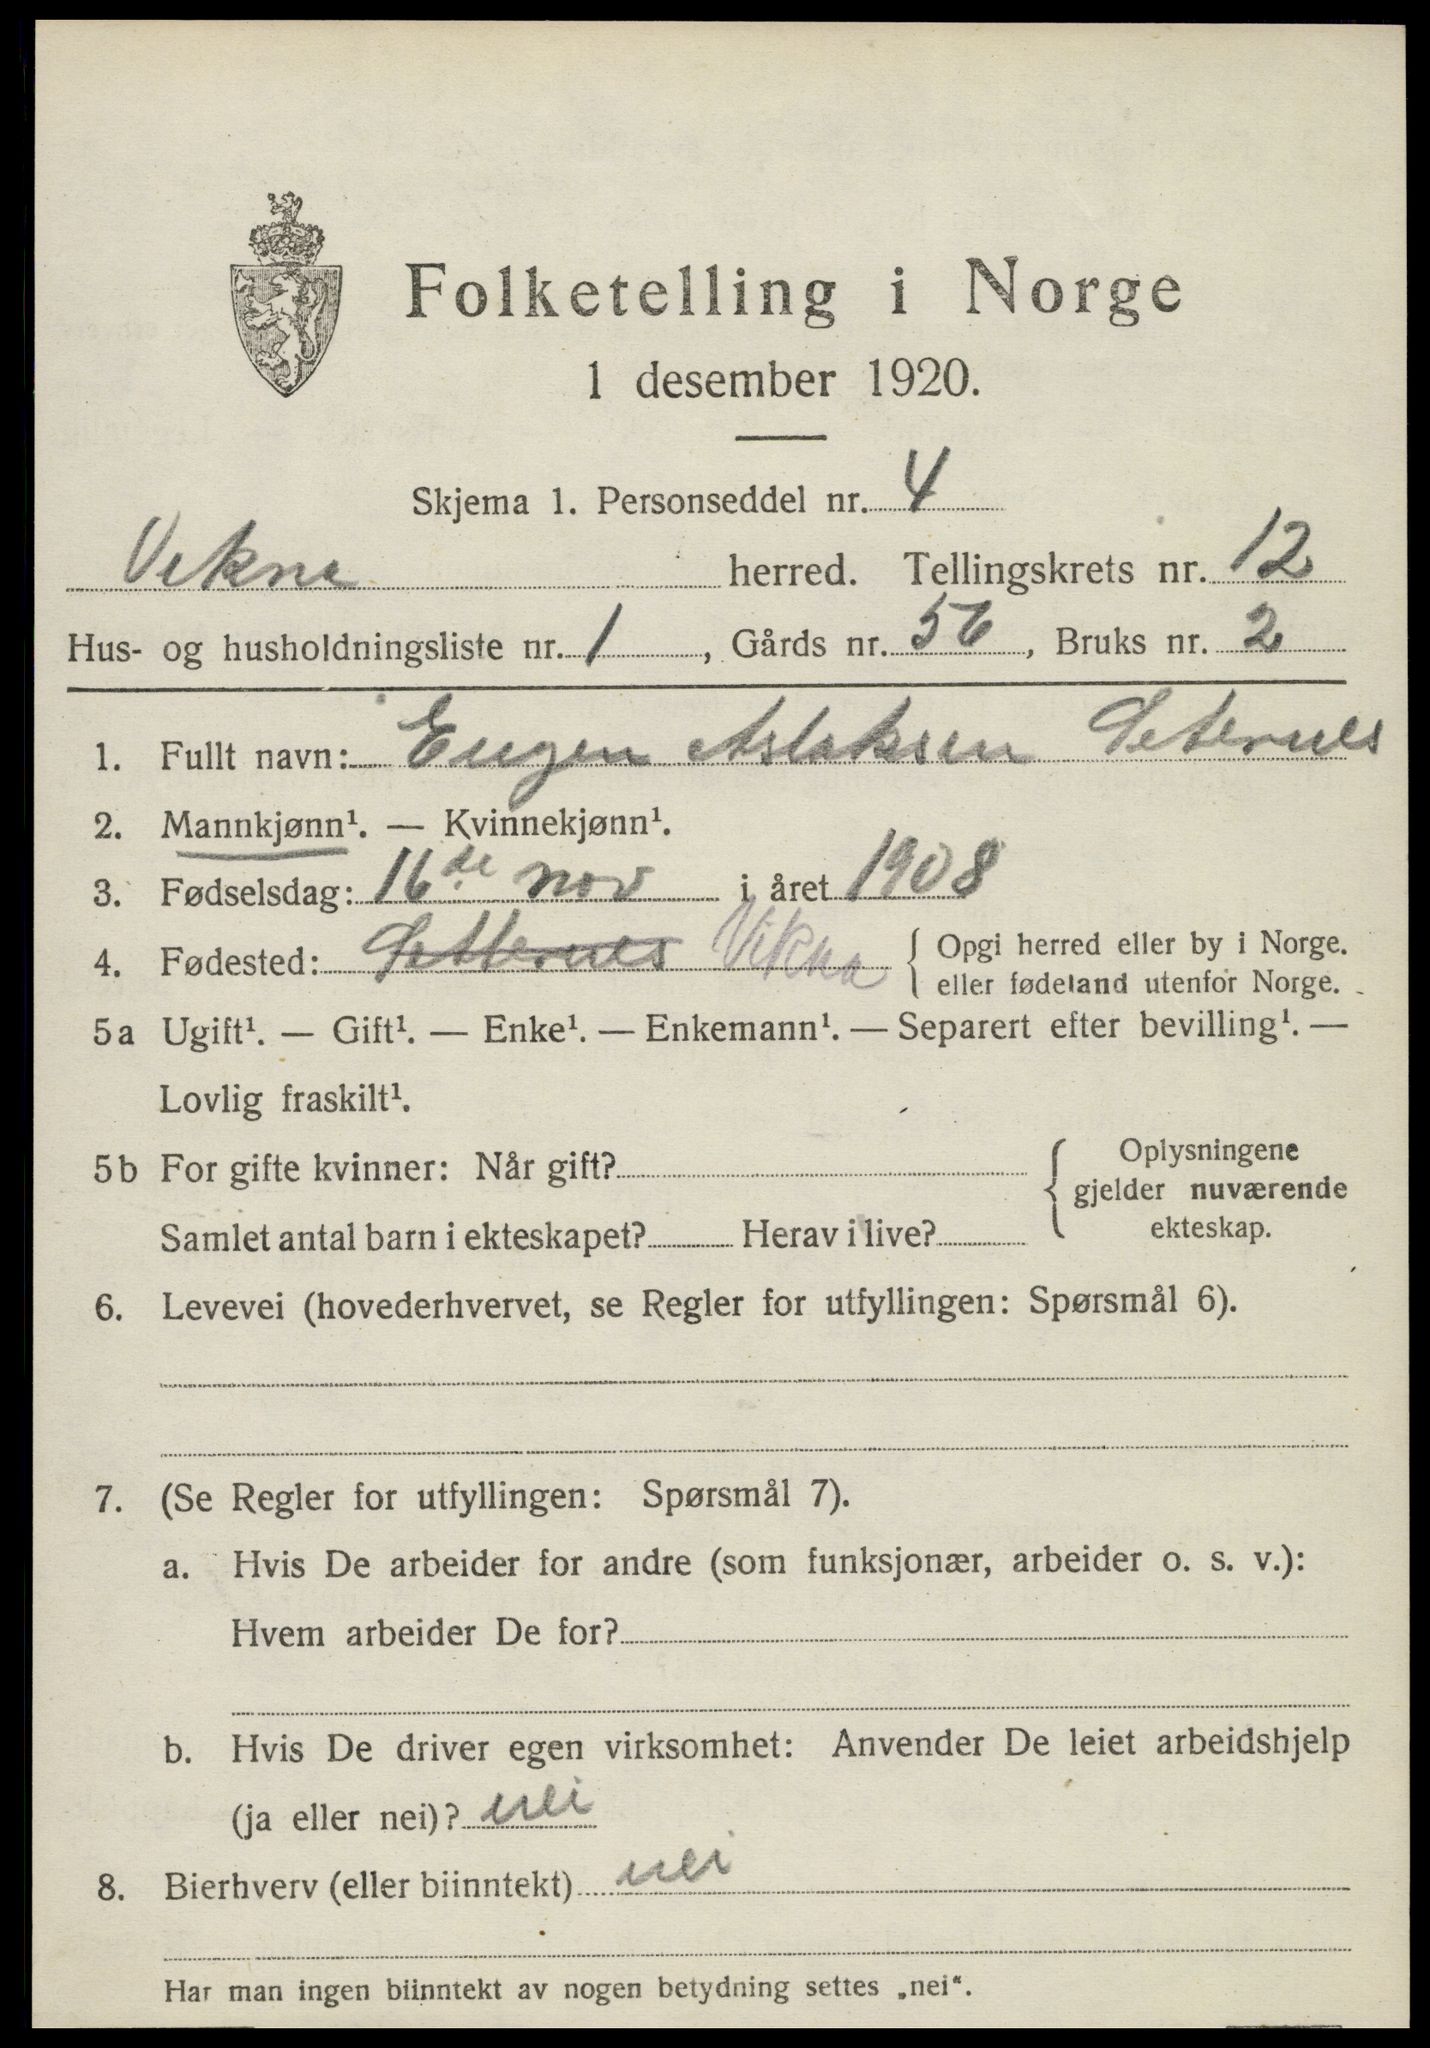 Folketelling i Norge
1 desember 1920.
Skjema 1. Personseddel nr. 4
Vikna herred. Tellingskrets nr. 12
Hus- og husholdningsliste nr. 1, Gårds nr. 56, Bruks nr. 2
1. Fullt navn: Eugen Aslaksen Seternes
2. Mannkjønn¹. — Kvinnekjønn¹.
3. Fødselsdag: 16de nov i året 1908
4. Fødested: Setternes Vikna { Opgi herred eller by i Norge.
eller fødeland utenfor Norge.
5a Ugift¹. — Gift¹. — Enke¹. — Enkemann¹. — Separert efter bevilling¹. —
Lovlig fraskilt¹.
5b For gifte kvinner: Når gift?
Samlet antal barn i ekteskapet? Herav i live?
{ Oplysningene
gjelder nuværende
ekteskap.
6. Levevei (hovederhvervet, se Regler for utfyllingen: Spørsmål 6).
7. (Se Regler for utfyllingen: Spørsmål 7).
a. Hvis De arbeider for andre (som funksjonær, arbeider o. s. v.):
Hvem arbeider De for?
b. Hvis De driver egen virksomhet: Anvender De leiet arbeidshjelp
(ja eller nei)? nei
8. Bierhverv (eller biinntekt) nei
Har man ingen biinntekt av nogen betydning settes „nei“.